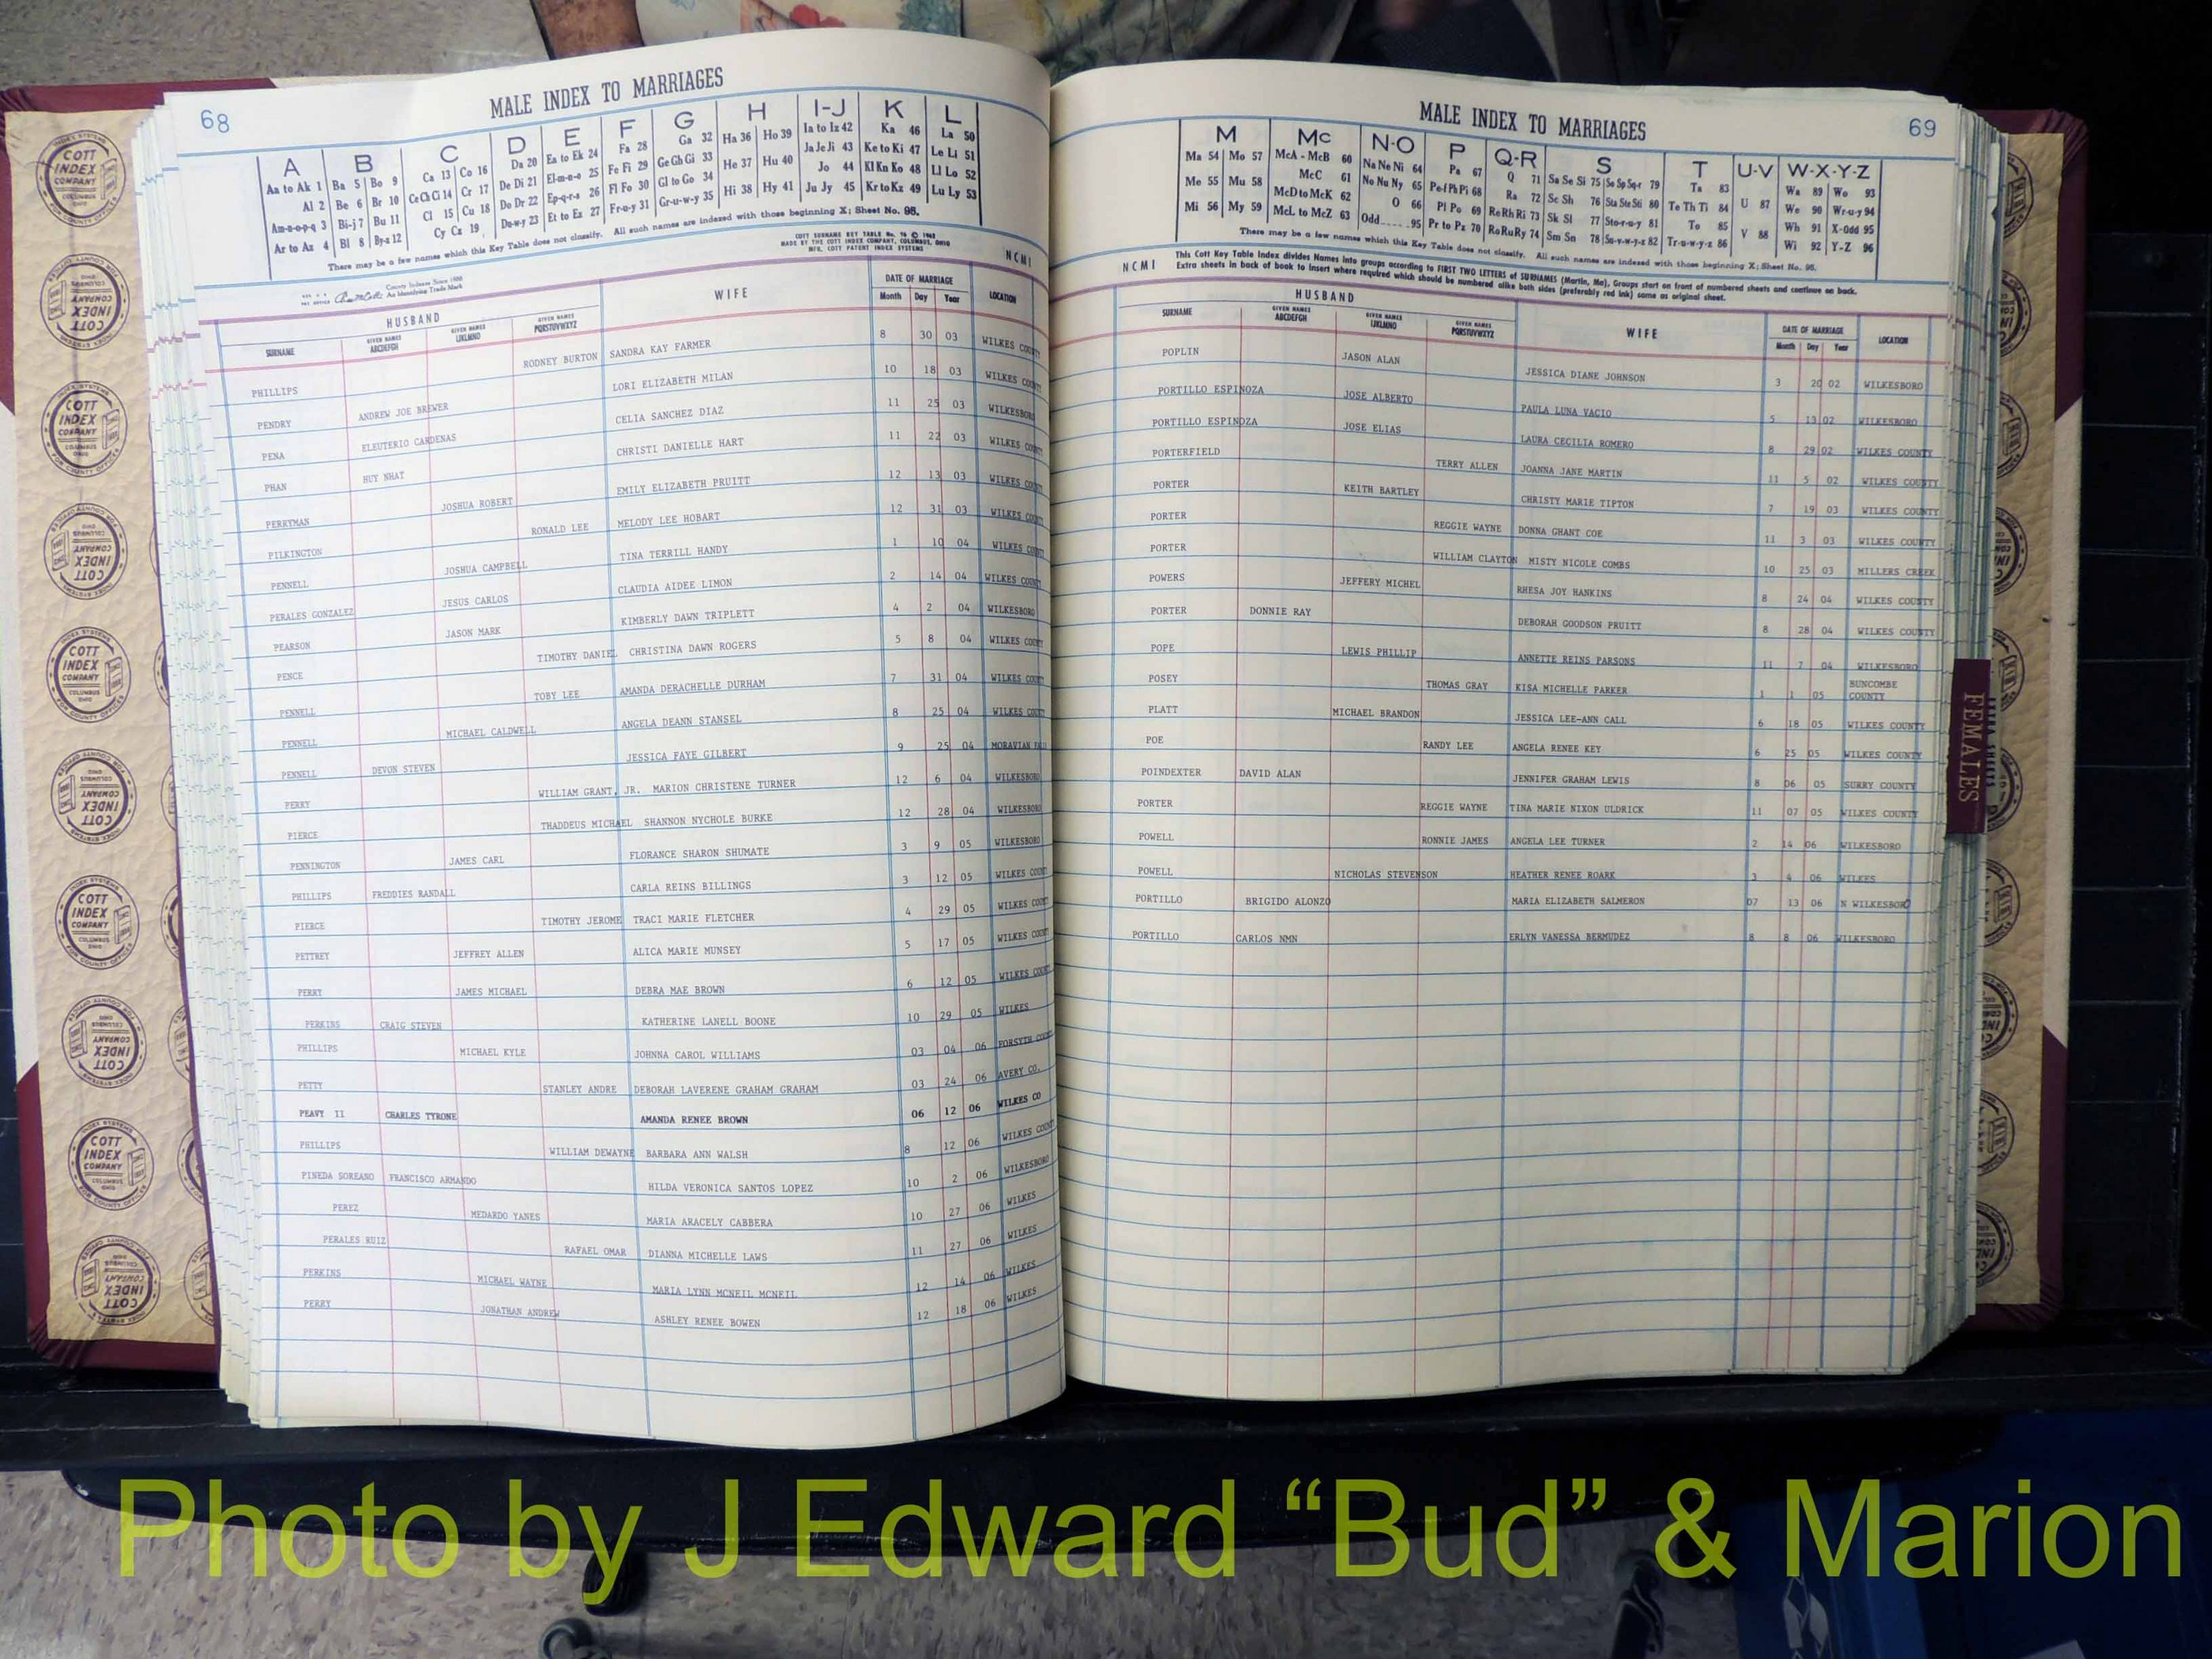 68
MALE INDEX TO MARRIAGES
A B C D E F G H I-J K L
Aa to Ak 1 Ba 5 Bo 9 Ca 13 Co 16 Da 20 Ea to Ek 24 Fa 28 Ga 32 Ha 36 Ho 39 Ia to Iz 42 Ka 46 La 50
Al 2 Be 6 Br 10 Ce Ch Ci 14 Cr 17 De Di 21 El-m-n-o 25 Fe Fi 29 Ge Gh Gi 33 He 37 Hu 40 Ja Je Ji 43 Ke to Ki 47 Le Li 51
Am-n-o-p-q 3 Bi-j 7 Bu 11 Cl 15 Cu 18 Do Dr 22 Ep-q-r-s 26 Fl Fo 30 Gl to Go 34 Hi 38 Hy 41 Jo 44 Kl Kn Ko 48 Ll Lo 52
Ar to Az 4 Bl 8 By-z 12 Cy Cz 19 Du-w-y 23 Et to Ez 27 Fr-u-y 31 Gr-u-w-y 35 Ju Jy 45 Kr to Kz 49 Lu Ly 53
There may be a few names which this Key Table does not classify. All such names are indexed with those beginning X; Sheet No. 95.
COTT SURNAME KEY TABLE
MADE BY THE COTT INDEX COMPANY, COLUMBUS, OHIO
MFR. COTT PATENT INDEX SYSTEMS
NCMI
County Indexes Since 1888
An Identifying Trade Mark
HUSBAND WIFE DATE OF MARRIAGE LOCATION
SURNAME GIVEN NAMES ABCDEFGH GIVEN NAMES IJKLMNO GIVEN NAMES PQRSTUVWXYZ Month Day Year
PHILLIPS RODNEY BURTON SANDRA KAY FARMER 8 30 03 WILKES COUNTY
PENDRY ANDREW JOE BREWER LORI ELIZABETH MILAN 10 18 03 WILKES COUNTY
PENA ELEUTERIO CARDENAS CELIA SANCHEZ DIAZ 11 25 03 WILKESBORO
PHAN HUY NHAT CHRISTI DANIELLE HART 11 22 03 WILKES COUNTY
PERRYMAN JOSHUA ROBERT EMILY ELIZABETH PRUITT 12 13 03 WILKES COUNTY
PILKINGTON RONALD LEE MELODY LEE HOBART 12 31 03 WILKES COUNTY
PENNELL JOSHUA CAMPBELL TINA TERRILL HANDY 1 10 04 WILKES COUNTY
PERALES GONZALEZ JESUS CARLOS CLAUDIA AIDEE LIMON 2 14 04 WILKES COUNTY
PEARSON JASON MARK KIMBERLY DAWN TRIPLETT 4 2 04 WILKESBORO
PENCE TIMOTHY DANIEL CHRISTINA DAWN ROGERS 5 8 04 WILKES COUNTY
PENNELL TOBY LEE AMANDA DERACHELLE DURHAM 7 31 04 WILKES COUNTY
PENNELL MICHAEL CALDWELL ANGELA DEANN STANSEL 8 25 04 WILKES COUNTY
PENNELL DEVON STEVEN JESSICA FAYE GILBERT 9 25 04 MORAVIAN FALL
PERRY WILLIAM GRANT, JR. MARION CHRISTENE TURNER 12 6 04 WILKESBORO
PIERCE THADDEUS MICHAEL SHANNON NYCHOLE BURKE 12 28 04 WILKESBORO
PENNINGTON JAMES CARL FLORANCE SHARON SHUMATE 3 9 05 WILKESBORO
PHILLIPS FREDDIES RANDALL CARLA REINS BILLINGS 3 12 05 WILKES COUNTY
PIERCE TIMOTHY JEROME TRACI MARIE FLETCHER 4 29 05 WILKES COUNTY
PETTREY JEFFREY ALLEN ALICA MARIE MUNSEY 5 17 05 WILKES COUNTY
PERRY JAMES MICHAEL DEBRA MAE BROWN 6 12 05 WILKES COUNTY
PERKINS CRAIG STEVEN KATHERINE LANELL BOONE 10 29 05 WILKES
PHILLIPS MICHAEL KYLE JOHNNA CAROL WILLIAMS 03 04 06 FORSYTH COUNTY
PETTY STANLEY ANDRE DEBORAH LAVERENE GRAHAM GRAHAM 03 24 06 AVERY CO.
PEAVY II CHARLES TYRONE AMANDA RENEE BROWN 06 12 06 WILKES CO
PHILLIPS WILLIAM DEWAYNE BARBARA ANN WALSH 8 12 06 WILKES COUNTY
PINEDA SOREANO FRANCISCO ARMANDO HILDA VERONICA SANTOS LOPEZ 10 2 06 WILKESBORO
PEREZ MEDARDO YANES MARIA ARACELY CABBERA 10 27 06 WILKES
PERALES RUIZ RAFAEL OMAR DIANNA MICHELLE LAWS 11 27 06 WILKES
PERKINS MICHAEL WAYNE MARIA LYNN MCNEIL MCNEIL 12 14 06 WILKES
PERRY JONATHAN ANDREW ASHLEY RENEE BOWEN 12 18 06 WILKES
69
MALE INDEX TO MARRIAGES
M Mc N-O P Q-R S T U-V W-X-Y-Z
Ma 54 Mo 57 McA - McB 60 Na Ne Ni 64 Pa 67 Q 71 Sa Se Si 75 So Sp Sq-r 79 Ta 83 Wa 89 Wo 93
Me 55 Mu 58 McC 61 No Nu Ny 65 Pe-f Ph Pi 68 Ra 72 Sc Sh 76 Sta Ste Sti 80 Te Th Ti 84 U 87 We 90 Wr-u-y 94
Mi 56 My 59 McD to McK 62 O 66 Pl Po 69 Re Rh Ri 73 Sk Sl 77 Sto-r-u-y 81 To 85 V 88 Wh 91 X-Odd 95
McL to McZ 63 Odd 95 Pr to Pz 70 Ro Ru Ry 74 Sm Sn 78 Su-v-w-y-z 82 Tr-u-w-y-z 86 Wi 92 Y-Z 96
There may be a few names which this Key Table does not classify. All such names are indexed with those beginning X; Sheet No. 95.
NCMI
This Cott Key Table Index divides Names into groups according to FIRST TWO LETTERS of SURNAMES (Martin, Ma). Groups start on front of numbered sheets and continue on back.
Extra sheets in back of book to insert where required which should be numbered alike both sides (preferably red ink) same as original sheet.
HUSBAND WIFE DATE OF MARRIAGE LOCATION
SURNAME GIVEN NAMES ABCDEFGH GIVEN NAMES IJKLMNO GIVEN NAMES PQRSTUVWXYZ Month Day Year
POPLIN JASON ALAN JESSICA DIANE JOHNSON 3 20 02 WILKESBORO
PORTILLO ESPINOZA JOSE ALBERTO PAULA LUNA VACIO 5 13 02 WILKESBORO
PORTILLO ESPINOZA JOSE ELIAS LAURA CECILIA ROMERO 8 29 02 WILKES COUNTY
PORTERFIELD TERRY ALLEN JOANNA JANE MARTIN 11 5 02 WILKES COUNTY
PORTER KEITH BARTLEY CHRISTY MARIE TIPTON 7 19 03 WILKES COUNTY
PORTER REGGIE WAYNE DONNA GHANT COE 11 3 03 WILKES COUNTY
PORTER WILLIAM CLAYTON MISTY NICOLE COMBS 10 25 03 MILLERS CREEK
POWERS JEFFERY MICHEL RHESA JOY HANKINS 8 24 04 WILKES COUNTY
PORTER DONNIE RAY DEBORAH GOODSON PRUITT 8 28 04 WILKES COUNTY
POPE LEWIS PHILLIP ANNETTE REINS PARSONS 11 7 04 WILKESBORO
POSEY THOMAS GRAY KISA MICHELLE PARKER 1 1 05 BUNCOMBE COUNTY
PLATT MICHAEL BRANDON JESSICA LEE-ANN CALL 6 18 05 WILKES COUNTY
POE RANDY LEE ANGELA RENEE KEY 6 25 05 WILKES COUNTY
POINDEXTER DAVID ALAN JENNIFER GRAHAM LEWIS 8 06 05 SURRY COUNTY
PORTER REGGIE WAYNE TINA MARIE NIXON ULDRICK 11 07 05 WILKES COUNTY
POWELL RONNIE JAMES ANGELA LEE TURNER 2 14 06 WILKESBORO
POWELL NICHOLAS STEVENSON HEATHER RENEE ROARK 3 4 06 WILKES
PORTILLO BRIGIDO ALONZO MARIA ELIZABETH SALMERON 07 13 06 N WILKESBORO
PORTILLO CARLOS NMN ERLYN VANESSA BERMUDEZ 8 8 06 WILKESBORO
FEMALES
COTT INDEX COMPANY
COLUMBUS OHIO
Photo by J Edward “Bud” & Marion